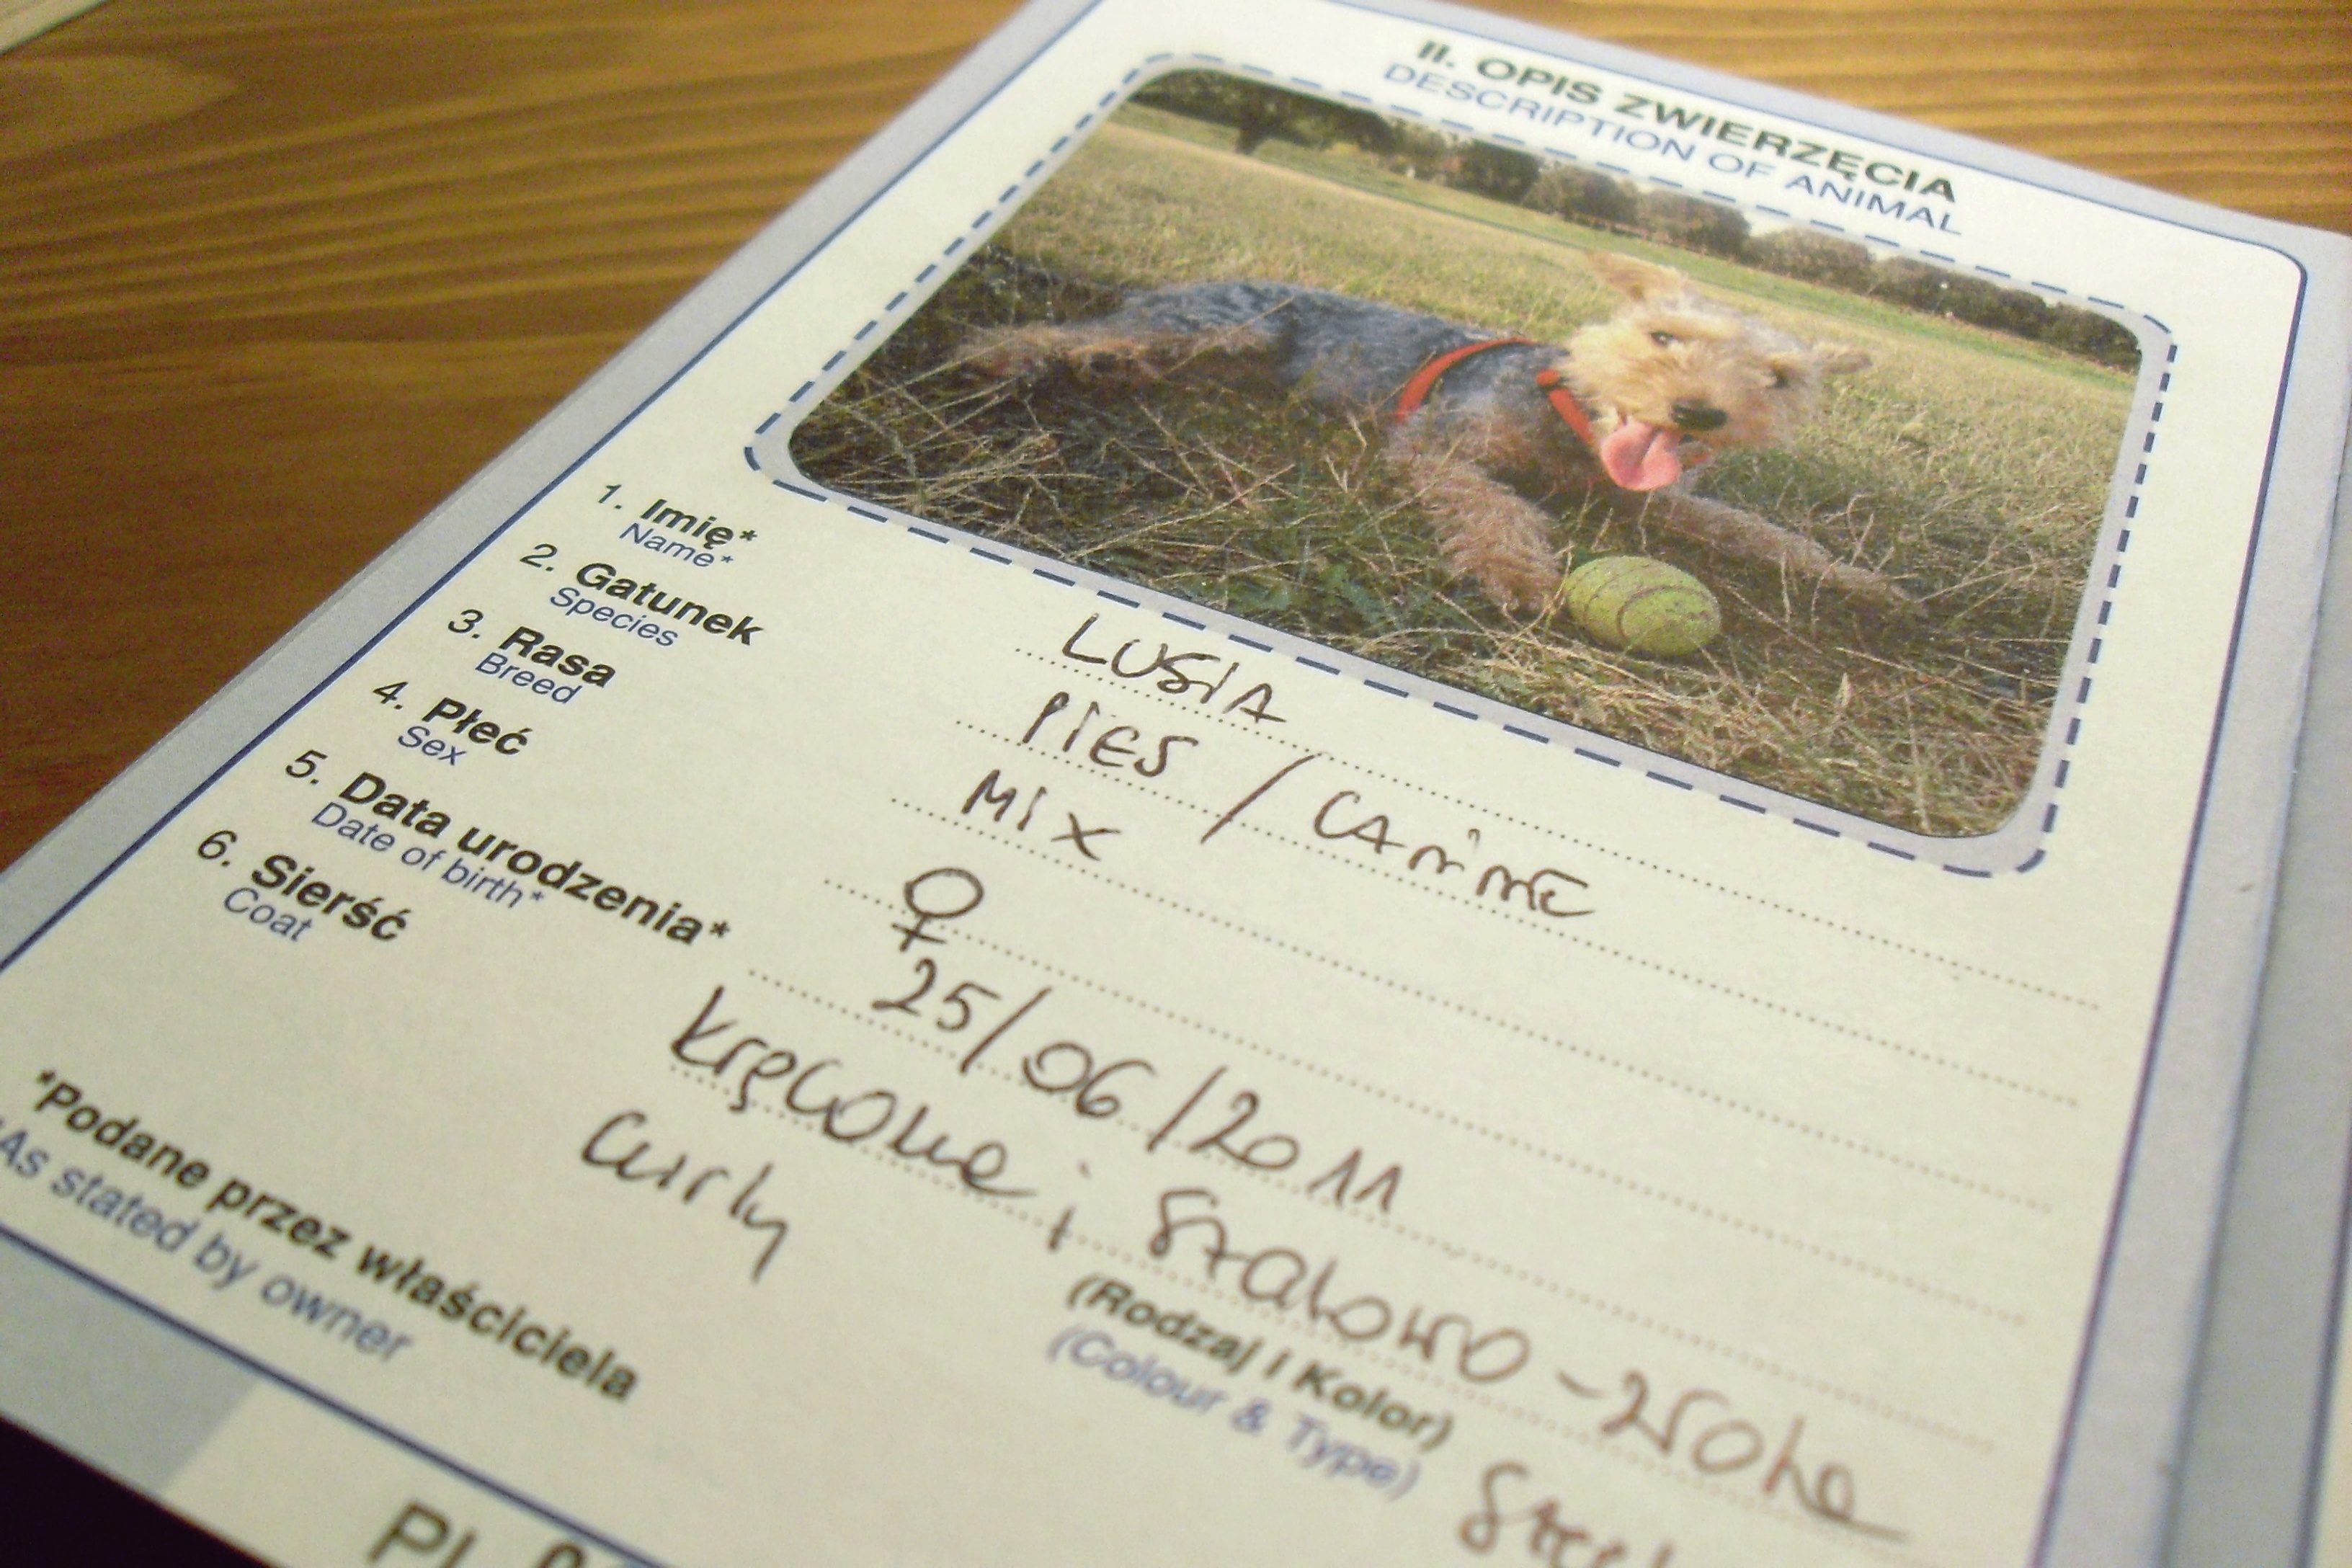 II. OPIS ZWIERZĘCIA
DESCRIPTION OF ANIMAL
1. Imię* LUSIA
Name*
2. Gatunek PIES / CANINE
Species
3. Rasa MIX
Breed
4. Płeć ♀
Sex
5. Data urodzenia* 25/06/2011
Date of birth*
6. Sierść kręcona i stalowo-złota
Coat curly
(Rodzaj i Kolor)
(Colour & Type)
*Podane przez właściciela
*As stated by owner
PL